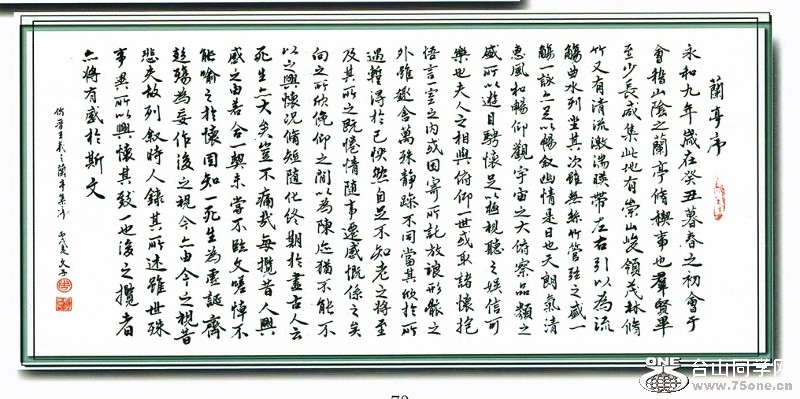 蘭亭序
永和九年歲在癸丑暮春之初會于
會稽山陰之蘭亭脩禊事也羣賢畢
至少長咸集此地有崇山峻領茂林脩
竹又有清流激湍暎帶左右引以為流
觴曲水列坐其次雖無絲竹管弦之盛一
觴一詠亦足以暢叙幽情是日也天朗氣清
惠風和暢仰觀宇宙之大俯察品類之
盛所以遊目騁懷足以極視聽之娛信可
樂也夫人之相與俯仰一世或取諸懷抱
悟言一室之內或因寄所託放浪形骸之
外雖趣舍萬殊靜躁不同當其欣於所
遇暫得於己快然自足不知老之將至
及其所之既惓情隨事遷感慨係之矣
向之所欣俛仰之間以為陳迹猶不能不
以之興懷況脩短隨化終期於盡古人云
死生亦大矣豈不痛哉每攬昔人興
感之由若合一契未嘗不臨文嗟悼不
能喻之於懷固知一死生為虛誕齊
彭殤為妄作後之視今亦由今之視昔
悲夫故列叙時人錄其所述雖世殊
事異所以興懷其致一也後之攬者
亦將有感於斯文
ONE
台山同学网
www.75one.cn